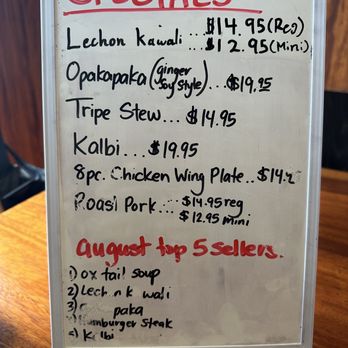 SPECIALS
Lechon Kawali... $14.95 (Reg)
$12.95 (Mini)
Opakapaka (ginger soy style)... $19.95
Tripe Stew... $14.95
Kalbi... $19.95
8pc. Chicken Wing Plate.. $14.
Roast Pork... $14.95 reg
$12.95 mini
August top 5 sellers.
1) ox tail soup
2) Lech n k wali
3) paka
Hamburger Steak
Kalbi